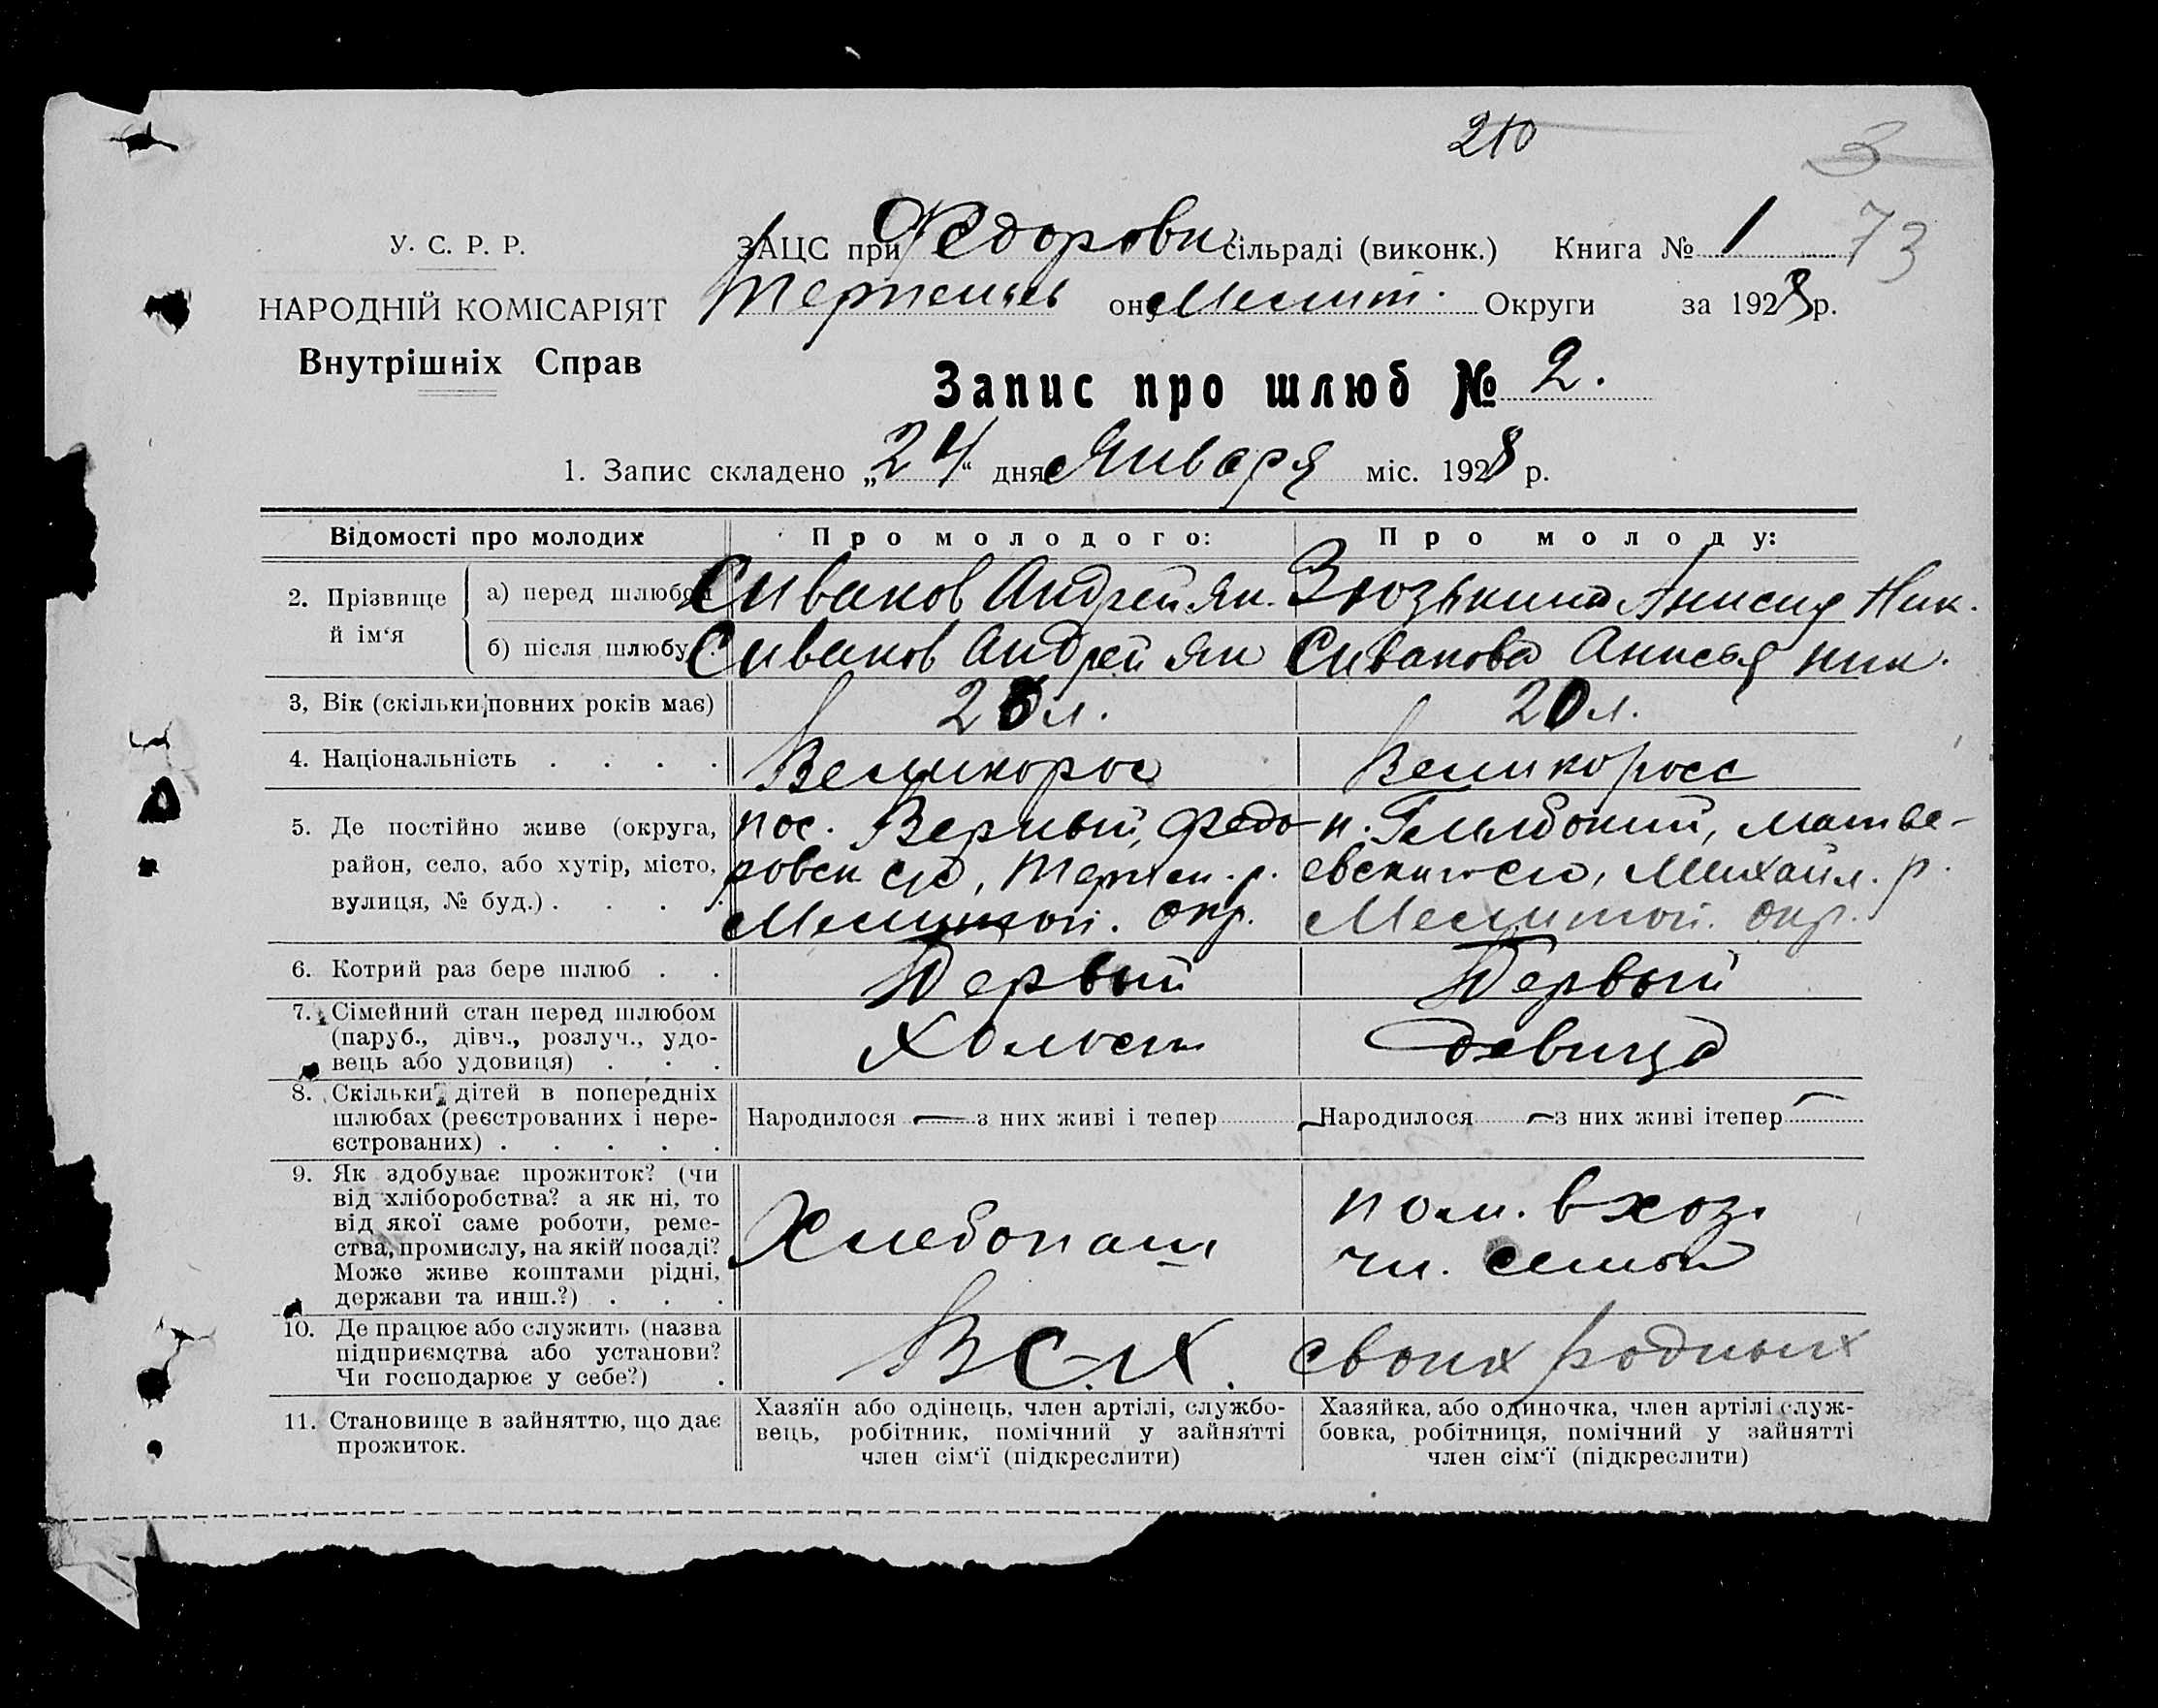 210
3
73
У. С. Р. Р.
НАРОДНІЙ КОМІСАРІЯТ
Внутрішніх Справ
ЗАЦС при Федоровк сільраді (виконк.) Книга № 1
Терпеньев ону Мелит. Округи за 1928 р.
Запис про шлюб № 2.
1. Запис складено „24“ дня Января міс. 1928 р.
Відомості про молодих Про молодого: Про молоду:
2. Прізвище й ім‘я
а) перед шлюбом Сиваков Андрей Як. Зюзькина Анисия Ник.
б) після шлюбу Сиваков Андрей Як Сивакова Анисья Ник.
3, Вік (скільки повних років має) 23 л. 20 л.
4. Національність . . . . Великорос Великоросс
5. Де постійно живе (округа, пос. Верный, Федо- п. , Матве-
район, село, або хутір, місто, ровск с/с, Терпен. р. евского с/с, Михайл. р.
вулиця, № буд.) . . . . Мелитоп. окр. Мелитоп. окр.
6. Котрий раз бере шлюб . . Первый Первый
7. Сімейний стан перед шлюбом
(паруб., дівч., розлуч., удо- Холост девица
вець або удовиця) . . .
8. Скільки дітей в попередніх
шлюбах (реєстрованих і нере- Народилося — з них живі і тепер — Народилося — з них живі ітепер —
єстрованих) . . . . .
9. Як здобуває прожиток? (чи
від хліборобства? а як ні, то пом. в хоз.
від якої саме роботи, реме-
ства, промислу, на якій посаді? Хлебопаш чл. семьи
Може живе коштами рідні,
держави та инш.?) . . .
10. Де працює або служить (назва
підприємства або установи? В С.-Х. своих родных
Чи господарює у себе?) .
11. Становище в зайняттю, що дає прожиток.
Хазяїн або одінець, член артілі, службо- Хазяйка, або одиночка, член артілі служ-
вець, робітник, помічний у зайнятті бовка, робітниця, помічний у зайнятті
член сім‘ї (підкреслити) член сім‘ї (підкреслити)